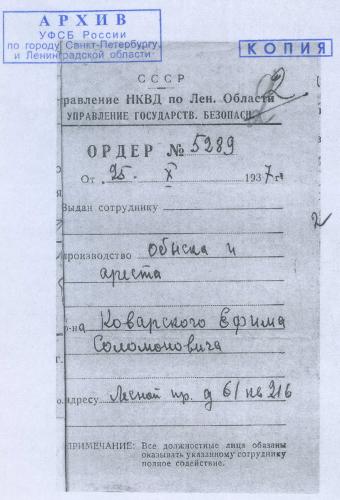 АРХИВ
УФСБ России
по городу Санкт-Петербургу
и Ленинградской области
КОПИЯ
СССР
2
правление НКВД по Лен. Области
УПРАВЛЕНИЕ ГОСУДАРСТВ. БЕЗОПАСН
ОРДЕР № 5289
От 25. X 1937 г.
Выдан сотруднику
производство обыска и
ареста
р-на Коварского Ефима
Соломоновича
г.
о адресу Лесной пр. д 61 кв 216
ПРИМЕЧАНИЕ: Все должностные лица обязаны
оказывать указанному сотруднику
полное содействие.
2